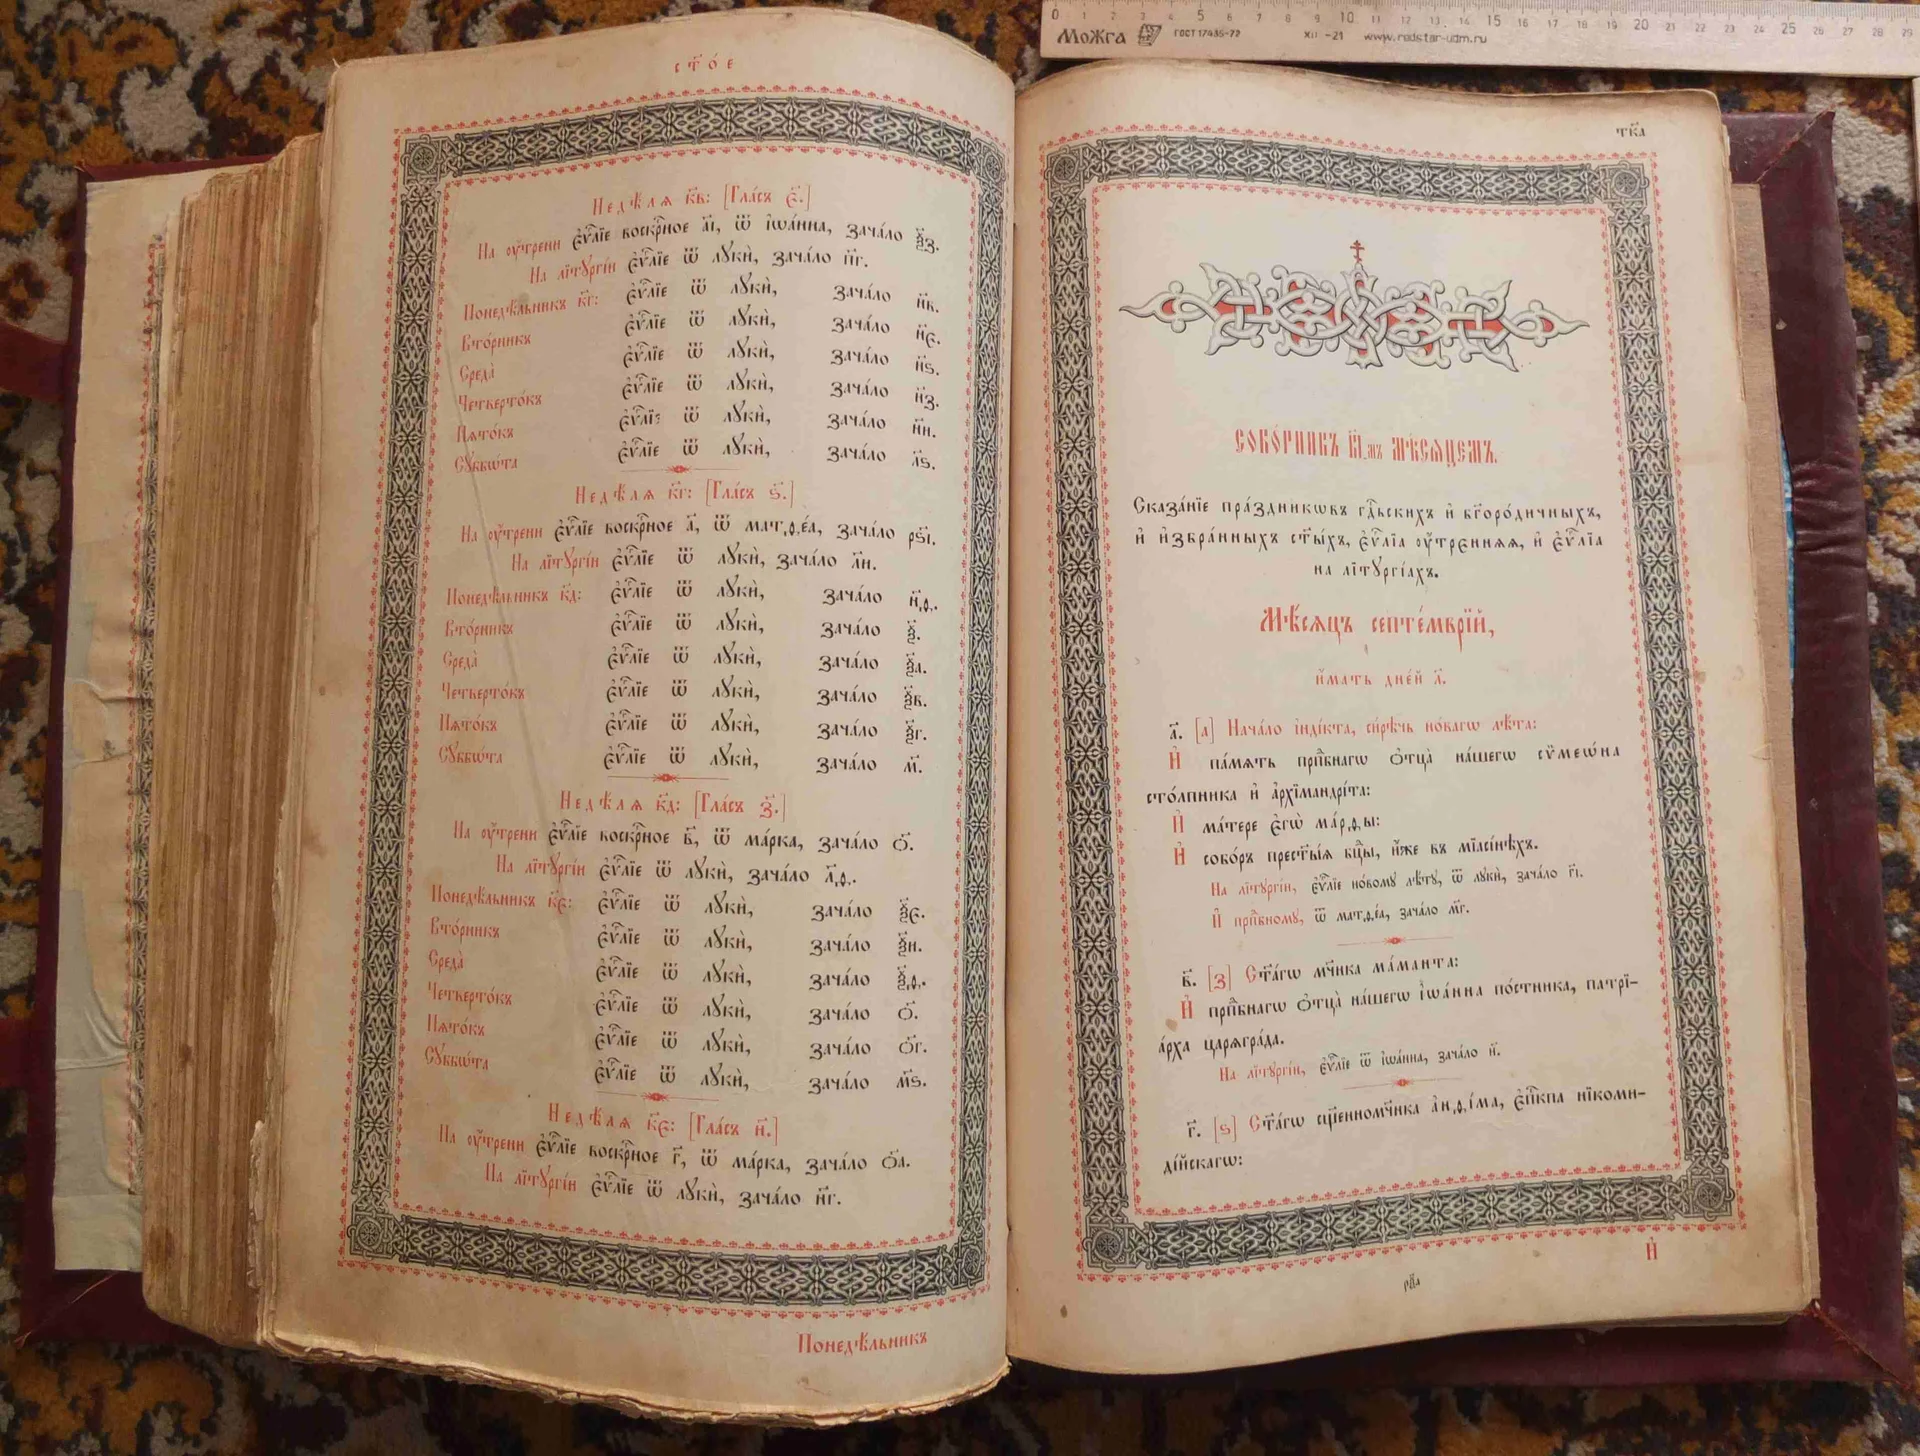 0 1 2 3 4 5 6 7 8 9 10 11 12 13 14 15 16 17 18 19 20 21 22 23 24 25 26 27 28 29
Можга ГОСТ 17435-72 XII -21 www.redstar-udm.ru
ст҃ое
Недѣлѧ к҃в: [Гла́съ є҃.]
На оу҆́трени є҆ѵⷢ҇лїе воскрⷭ҇ное а҃і, ѿ і҆ѡа́нна, зача́ло ѯ҃з.
На лїтꙋргі́и є҆ѵⷢ҇лїе ѿ лꙋкѝ, зача́ло н҃г.
Понедѣ́льникъ к҃г: є҆ѵⷢ҇лїе ѿ лꙋкѝ, зача́ло н҃в.
Вто́рникъ є҆ѵⷢ҇лїе ѿ лꙋкѝ, зача́ло н҃є.
Среда̀ є҆ѵⷢ҇лїе ѿ лꙋкѝ, зача́ло н҃ѕ.
Четверто́къ є҆ѵⷢ҇лїе ѿ лꙋкѝ, зача́ло н҃з.
Пѧто́къ є҆ѵⷢ҇лїе ѿ лꙋкѝ, зача́ло н҃и.
Сꙋббѡ́та є҆ѵⷢ҇лїе ѿ лꙋкѝ, зача́ло л҃ѕ.
Недѣлѧ к҃г: [Гла́съ ѕ҃.]
На оу҆́трени є҆ѵⷢ҇лїе воскрⷭ҇ное а҃, ѿ матѳе́а, зача́ло рѕ҃і.
На лїтꙋргі́и є҆ѵⷢ҇лїе ѿ лꙋкѝ, зача́ло л҃и.
Понедѣ́льникъ к҃д: є҆ѵⷢ҇лїе ѿ лꙋкѝ, зача́ло н҃ѳ.
Вто́рникъ є҆ѵⷢ҇лїе ѿ лꙋкѝ, зача́ло ѯ҃.
Среда̀ є҆ѵⷢ҇лїе ѿ лꙋкѝ, зача́ло ѯ҃а.
Четверто́къ є҆ѵⷢ҇лїе ѿ лꙋкѝ, зача́ло ѯ҃в.
Пѧто́къ є҆ѵⷢ҇лїе ѿ лꙋкѝ, зача́ло ѯ҃г.
Сꙋббѡ́та є҆ѵⷢ҇лїе ѿ лꙋкѝ, зача́ло м҃.
Недѣлѧ к҃д: [Гла́съ з҃.]
На оу҆́трени є҆ѵⷢ҇лїе воскрⷭ҇ное в҃, ѿ ма́рка, зача́ло о҃.
На лїтꙋргі́и є҆ѵⷢ҇лїе ѿ лꙋкѝ, зача́ло л҃ѳ.
Понедѣ́льникъ к҃є: є҆ѵⷢ҇лїе ѿ лꙋкѝ, зача́ло ѯ҃є.
Вто́рникъ є҆ѵⷢ҇лїе ѿ лꙋкѝ, зача́ло ѯ҃и.
Среда̀ є҆ѵⷢ҇лїе ѿ лꙋкѝ, зача́ло ѯ҃ѳ.
Четверто́къ є҆ѵⷢ҇лїе ѿ лꙋкѝ, зача́ло о҃.
Пѧто́къ є҆ѵⷢ҇лїе ѿ лꙋкѝ, зача́ло о҃г.
Сꙋббѡ́та є҆ѵⷢ҇лїе ѿ лꙋкѝ, зача́ло м҃ѕ.
Недѣлѧ к҃є: [Гла́съ и҃.]
На оу҆́трени є҆ѵⷢ҇лїе воскрⷭ҇ное г҃, ѿ ма́рка, зача́ло о҃а.
На лїтꙋргі́и є҆ѵⷢ҇лїе ѿ лꙋкѝ, зача́ло н҃г.
Понедѣ́льникъ
тк҃а
СОБО́РНИКЪ в҃і.мъ МѢ́СѦЦЕМЪ.
Сказа́нїе пра́здникѡвъ гдⷭ҇скихъ и҆ бг҃оро́дичныхъ,
и҆ и҆збра́нныхъ ст҃ы́хъ, є҆ѵⷢ҇лїа оу҆́трєннѧѧ, и҆ є҆ѵⷢ҇лїа
на лїтꙋргі́ахъ.
Мѣ́сѧцъ септе́мврїй,
и҆́мать дне́й л҃.
а҃. [а] Нача́ло і҆нді́кта, си́рѣчь но́вагѡ лѣ́та:
И҆ па́мѧть прпⷣбнагѡ ѻ҆тца̀ на́шегѡ сѷмеѡ́на
сто́лпника и҆ а҆рхїмандрі́та:
И҆ ма́тере є҆гѡ̀ ма́рѳы:
И҆ собо́ръ прест҃ы́ѧ бцⷣы, и҆́же въ мїасі́нѣхъ.
На лїтꙋргі́и, є҆ѵⷢ҇лїе но́вомꙋ лѣ́тꙋ, ѿ лꙋкѝ, зача́ло г҃і.
И҆ прпⷣбномꙋ, ѿ матѳе́а, зача́ло м҃г.
в҃. [з] Ст҃а́гѡ мч҃ника ма́манта:
И҆ прпⷣбнагѡ ѻ҆тца̀ на́шегѡ і҆ѡа́нна по́стника, патрї-
а́рха царѧгра́да.
На лїтꙋргі́и, є҆ѵⷢ҇лїе ѿ і҆ѡа́нна, зача́ло н҃.
г҃. [ѕ] Ст҃а́гѡ сщ҃енномч҃ника а҆нѳі́ма, є҆пⷭ҇кпа нїкоми-
ді́йскагѡ:
И҆